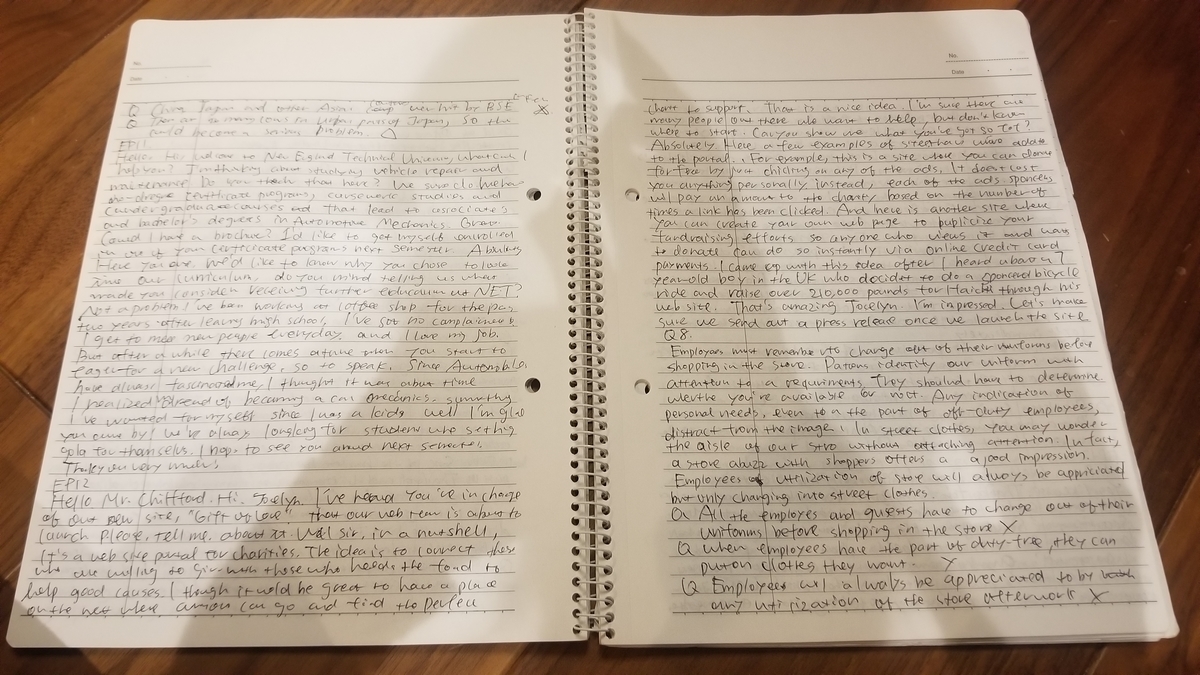 No.
Date
Q China, Japan and other Asian were hit by BSE
Q There are so many cows in urban parts of Japan, so this
could become a serious problem. △
EP11
Hello. welcome to New England Technical University, what can I
help you? I'm thinking about studying vehicle repair and
maintenance. Do you teach them here? We sure do. We have
certificate programs, car generic studies and
undergraduate courses and that lead to associate's
and bachelor's degrees in Automotive Mechanics. Great.
Could I have a brochure? I'd like to get myself enrolled
in one of your certificate programs next semester. Absolutely
Here you are. We'd like to know why you chose to
our curriculum, do you mind telling us what
made you consider receiving further education at NET?
Not a problem! I've been working at coffee shop for the past
two years after leaving high school. I've got no complaints
I get to meet new people everyday, and I love my job.
But after a while there comes a time when you start to
eager for a new challenge, so to speak. Since Automobiles
have always fascinated me, I thought it was about time
I realized dream of becoming a car mechanics,
I've wanted for myself since I was a kids. Well I'm glad
you came by! We're always looking for students who setting
gola for thamselus. I hope to see you around next semester.
Thank you very much!
EP12
Hello Mr. Chifford. Hi, Jocelyn. I've heard you're in charge
of our new site, "Gift of Love" that our web team is about to
launch. Please, tell me, about it. Well sir, in a nutshell,
It's a web site portal for charities. The idea is to connect those
who are willing to give with those who needs the fond to
help good causes. I though it would be great to have a place
on the net where can go and find the perfect
No.
Date
charity to support. That is a nice idea. I'm sure there are
many people out there who want to help, but don't know
where to start. Can you show me what you've got so far?
Absolutely. Here a few examples of sites we have added
to the portal. For example, this is a site where you can donate
for free by just clicking on any of the ads. It doesn't cost
you anything personally instead, each of the ads sponcers
will pay an amount to the charity based on the number of
times a link has been clicked. And here is another site where
you can create your own web page to publicize your
fundraising efforts so anyone who views it and wants
to donate can do so instantly via online credit card
payments. I came up with this idea after I heard about a 7
year old boy in the UK who decided to do a sponcerd bicycle
ride and raise over 210,000 pounds for Haichi through his
web site. That's amazing Jocelyn. I'm impressed. Let's make
sure we send out a press release once we launch the site
Q8.
Employees must remember to change out of their uniforms before
shopping in the store. Patrons identity our uniform with
attention to a requriments. They should have to determine
wherthe you're available or not. Any indication of
personal needs, even to on the part of off-duty employees,
distract from the image. In street clothes, you may wonder
the aisle of our stro without attracting attention. In fact,
a store abuzz with shoppers offers a a good impression.
Employees utilization of store will always be appriciated
but only changing into street clothes.
Q All the employes and guests have to change out of their
uniforms before shopping in the store X
Q When employees have the part of duty-free, they can
put on clothes they want. Y
Q Employees will always be appreciated to by
any utilization of the store afterwork X